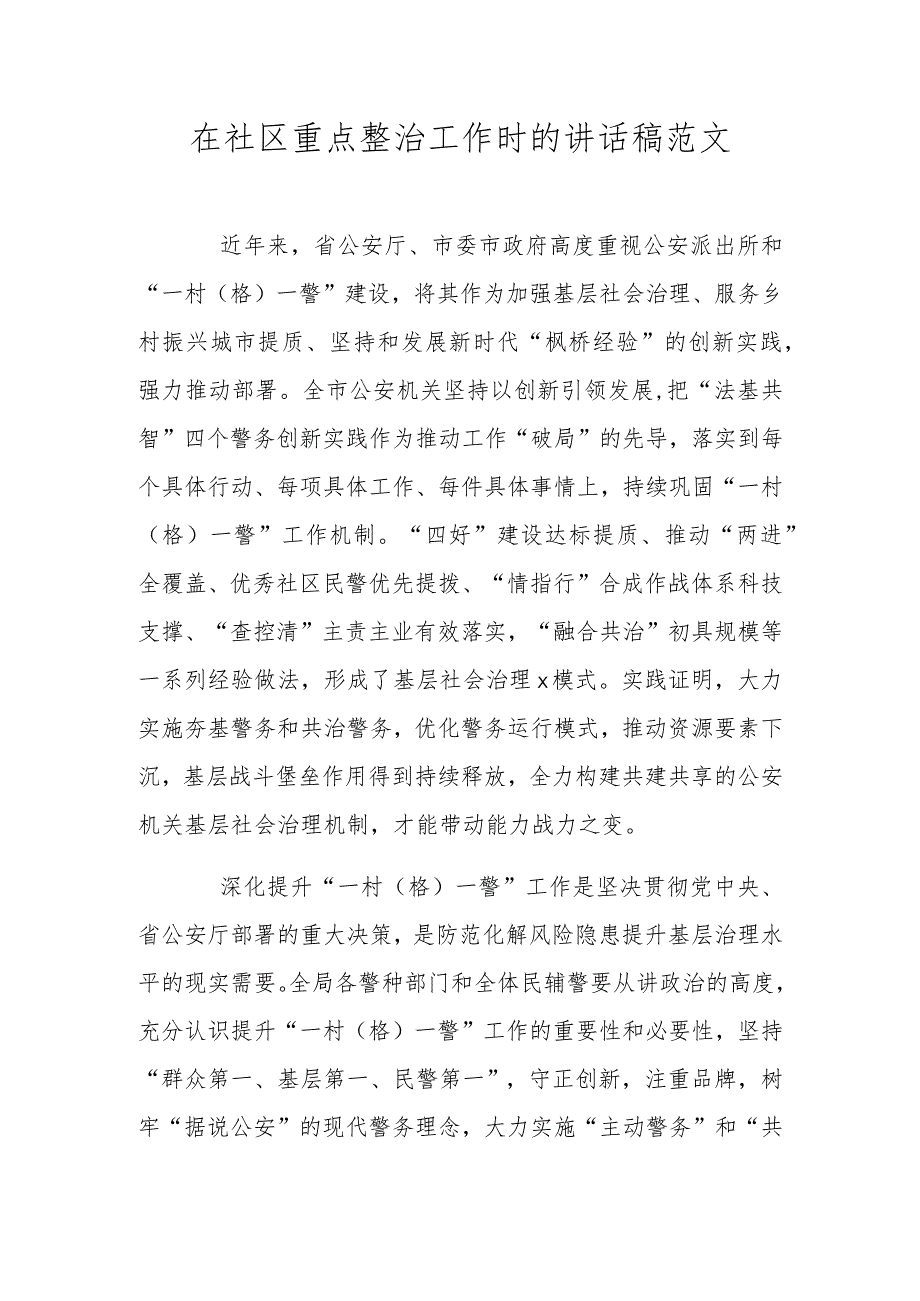 在社区重点整治工作时的讲话稿范文
近年来，省公安厅、市委市政府高度重视公安派出所和
“一村（格）一警”建设，将其作为加强基层社会治理、服务乡
村振兴城市提质、坚持和发展新时代“枫桥经验”的创新实践，
强力推动部署。全市公安机关坚持以创新引领发展,把“法基共
智”四个警务创新实践作为推动工作“破局”的先导，落实到每
个具体行动、每项具体工作、每件具体事情上，持续巩固“一村
（格）一警”工作机制。“四好”建设达标提质、推动“两进”
全覆盖、优秀社区民警优先提拨、“情指行”合成作战体系科技
支撑、“查控清”主责主业有效落实，“融合共治”初具规模等
一系列经验做法，形成了基层社会治理x模式。实践证明，大力
实施夯基警务和共治警务，优化警务运行模式，推动资源要素下
沉，基层战斗堡垒作用得到持续释放，全力构建共建共享的公安
机关基层社会治理机制，才能带动能力战力之变。
深化提升“一村（格）一警”工作是坚决贯彻党中央、
省公安厅部署的重大决策，是防范化解风险隐患提升基层治理水
平的现实需要。全局各警种部门和全体民辅警要从讲政治的高度，
充分认识提升“一村（格）一警”工作的重要性和必要性，坚持
“群众第一、基层第一、民警第一”，守正创新，注重品牌，树
牢“据说公安”的现代警务理念，大力实施“主动警务”和“共